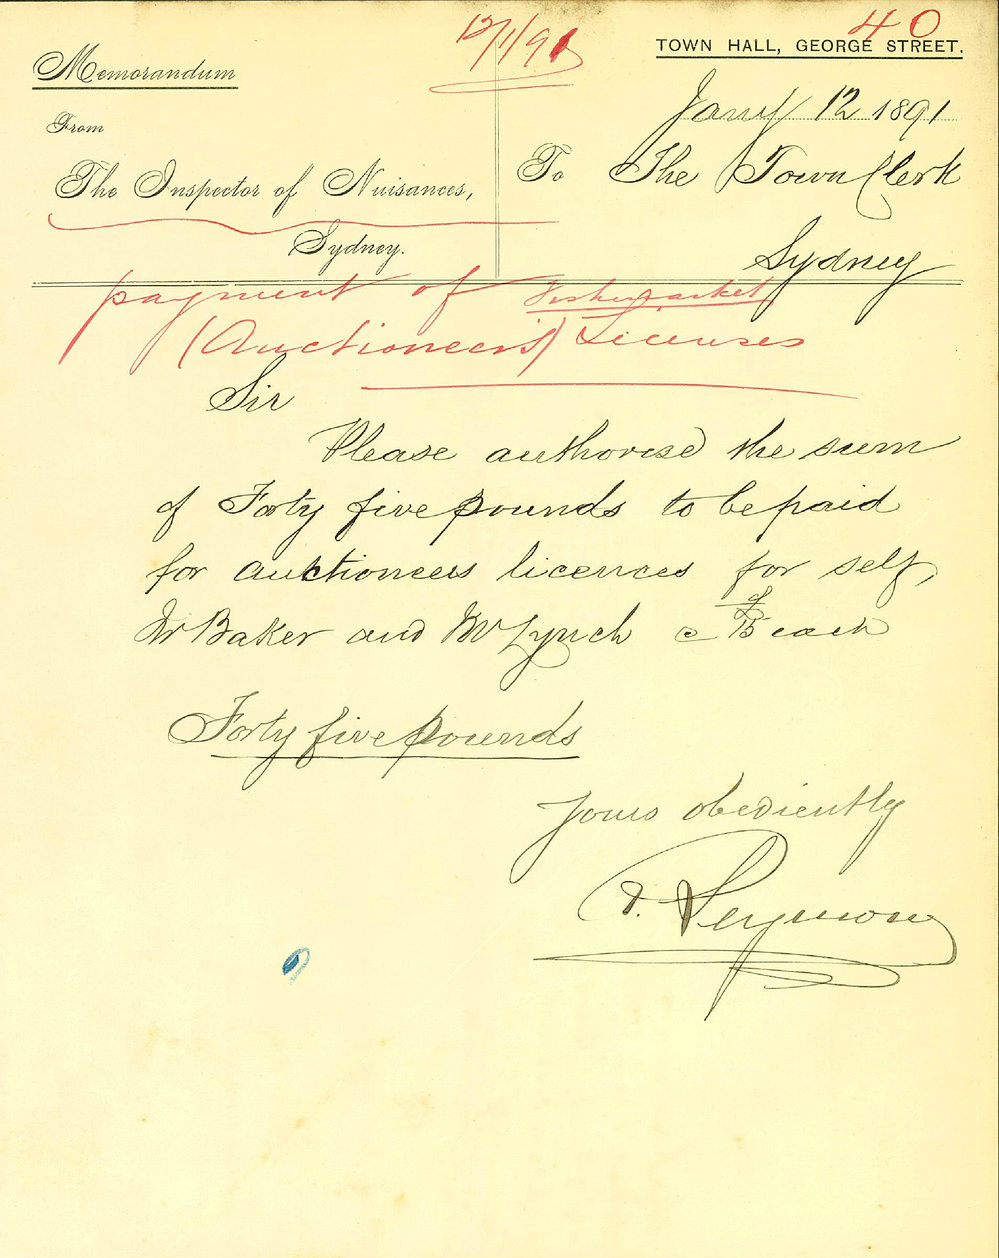 12/1/91
40
TOWN HALL, GEORGE STREET.
Memorandum
Jany 12 1891
From
The Inspector of Nuisances,
Sydney.
To The Town Clerk
Sydney
payment of Fishmarket
(Auctioneers) Licenses
Sir
Please authorise the sum
of Forty five pounds to be paid
for auctioneers licences for self,
Mr Baker and Mr Lynch @ £15 each
Forty five pounds
Yours obediently
T. Seymour